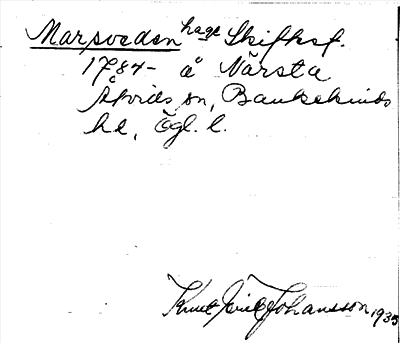 Marsveden hage Skifksf.
1784- å Närsta
Åtvids sn, Bankekinds
hd, Ögl. l.
Knut Eric Johansson 1935